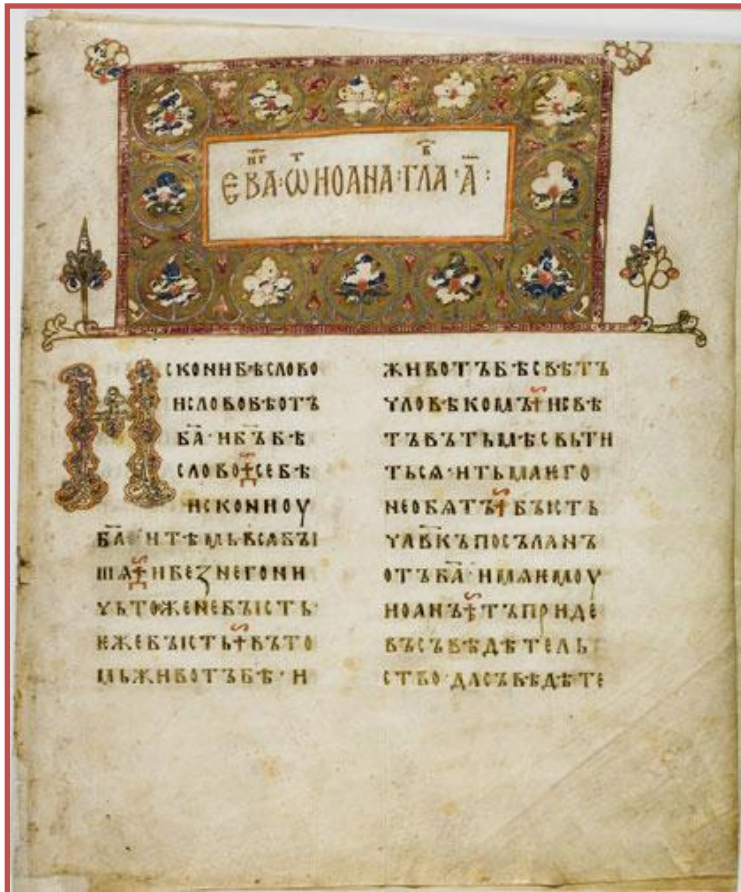 ЄВА҃НГ·Ѡ҃Т ИОАНА·ГЛА҃В·А҃:
ИСКОНИБѢСЛОВО
ИСЛОВОБѢОТЪ
БА҃·ИБЪ҃БѢ
СЛОВО·СЕБѢ
ИСКОНИОУ
БА҃·И·ТѢМЬВСѦБЫ
ШѦ·ИБЕЗНЕГОНИ
ЧЬТОЖЕНЕБЫСТЬ·
ЕЖЕБЫСТЬ·ВЪТО
МЬЖИВОТЪБѢ·И
ЖИВОТЪБѢСВѢТЪ
ЧЛОВѢКОМЪ·ИСВѢ
ТЪВЪТЬМѢСВЬТИ
ТЬСѦ·ИТЬМАѤГО
НЕОБѦТЪ·БЫСТЬ
ЧЛ҃ВКЪПОСЪЛАНЪ
ОТЪБА҃·ИМѦѤМОУ
ИОАНЪ·ТЪПРИДЕ
ВЪСЪВѢДѢТЕЛЬ
СТВО·ДАСЪВѢДѢТЕ